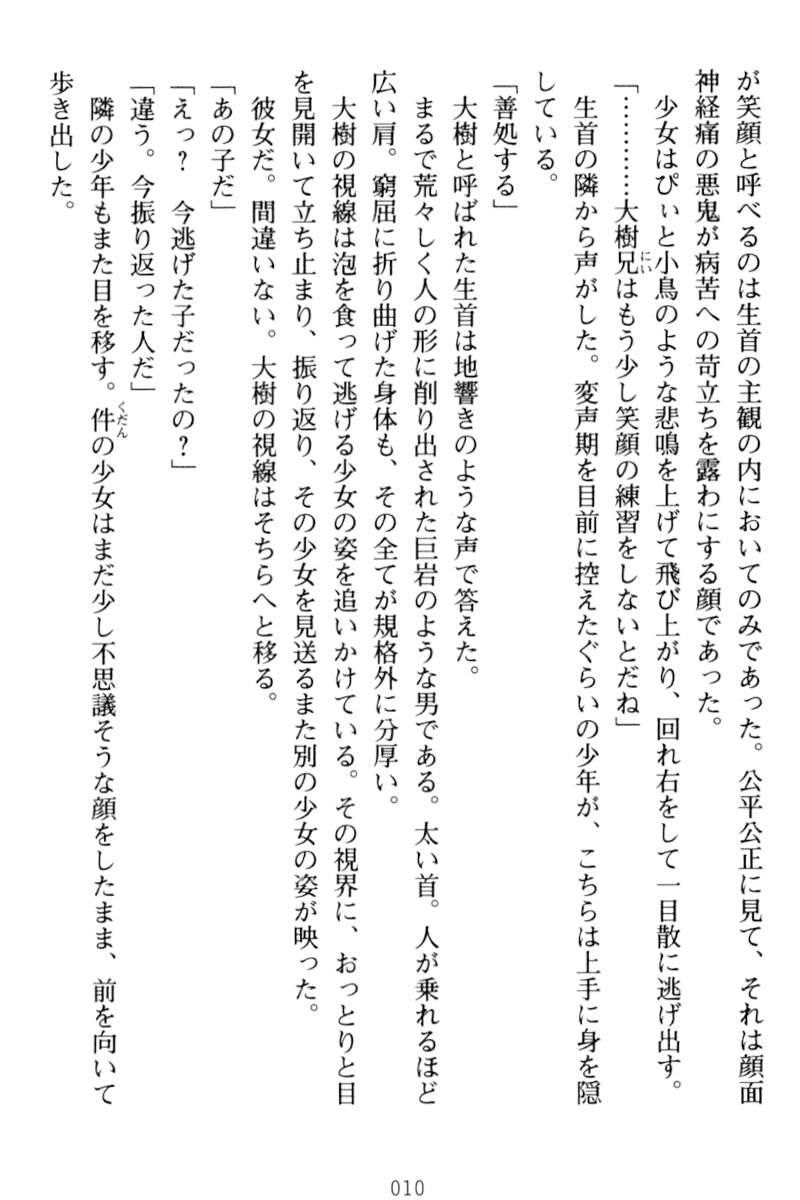 が笑顔と呼べるのは生首の主観の内においてのみであった。公平公正に見て、それは顔面
神経痛の悪鬼が病苦への苛立ちを露わにする顔であった。
　少女はぴぃと小鳥のような悲鳴を上げて飛び上がり、回れ右をして一目散に逃げ出す。
「…………大樹兄にいはもう少し笑顔の練習をしないとだね」
　生首の隣から声がした。変声期を目前に控えたぐらいの少年が、こちらは上手に身を隠
している。
「善処する」
　大樹と呼ばれた生首は地響きのような声で答えた。
　まるで荒々しく人の形に削り出された巨岩のような男である。太い首。人が乗れるほど
広い肩。窮屈に折り曲げた身体も、その全てが規格外に分厚い。
　大樹の視線は泡を食って逃げる少女の姿を追いかけている。その視界に、おっとりと目
を見開いて立ち止まり、振り返り、その少女を見送るまた別の少女の姿が映った。
　彼女だ。間違いない。大樹の視線はそちらへと移る。
「あの子だ」
「えっ？　今逃げた子だったの？」
「違う。今振り返った人だ」
　隣の少年もまた目を移す。件くだんの少女はまだ少し不思議そうな顔をしたまま、前を向いて
歩き出した。
010